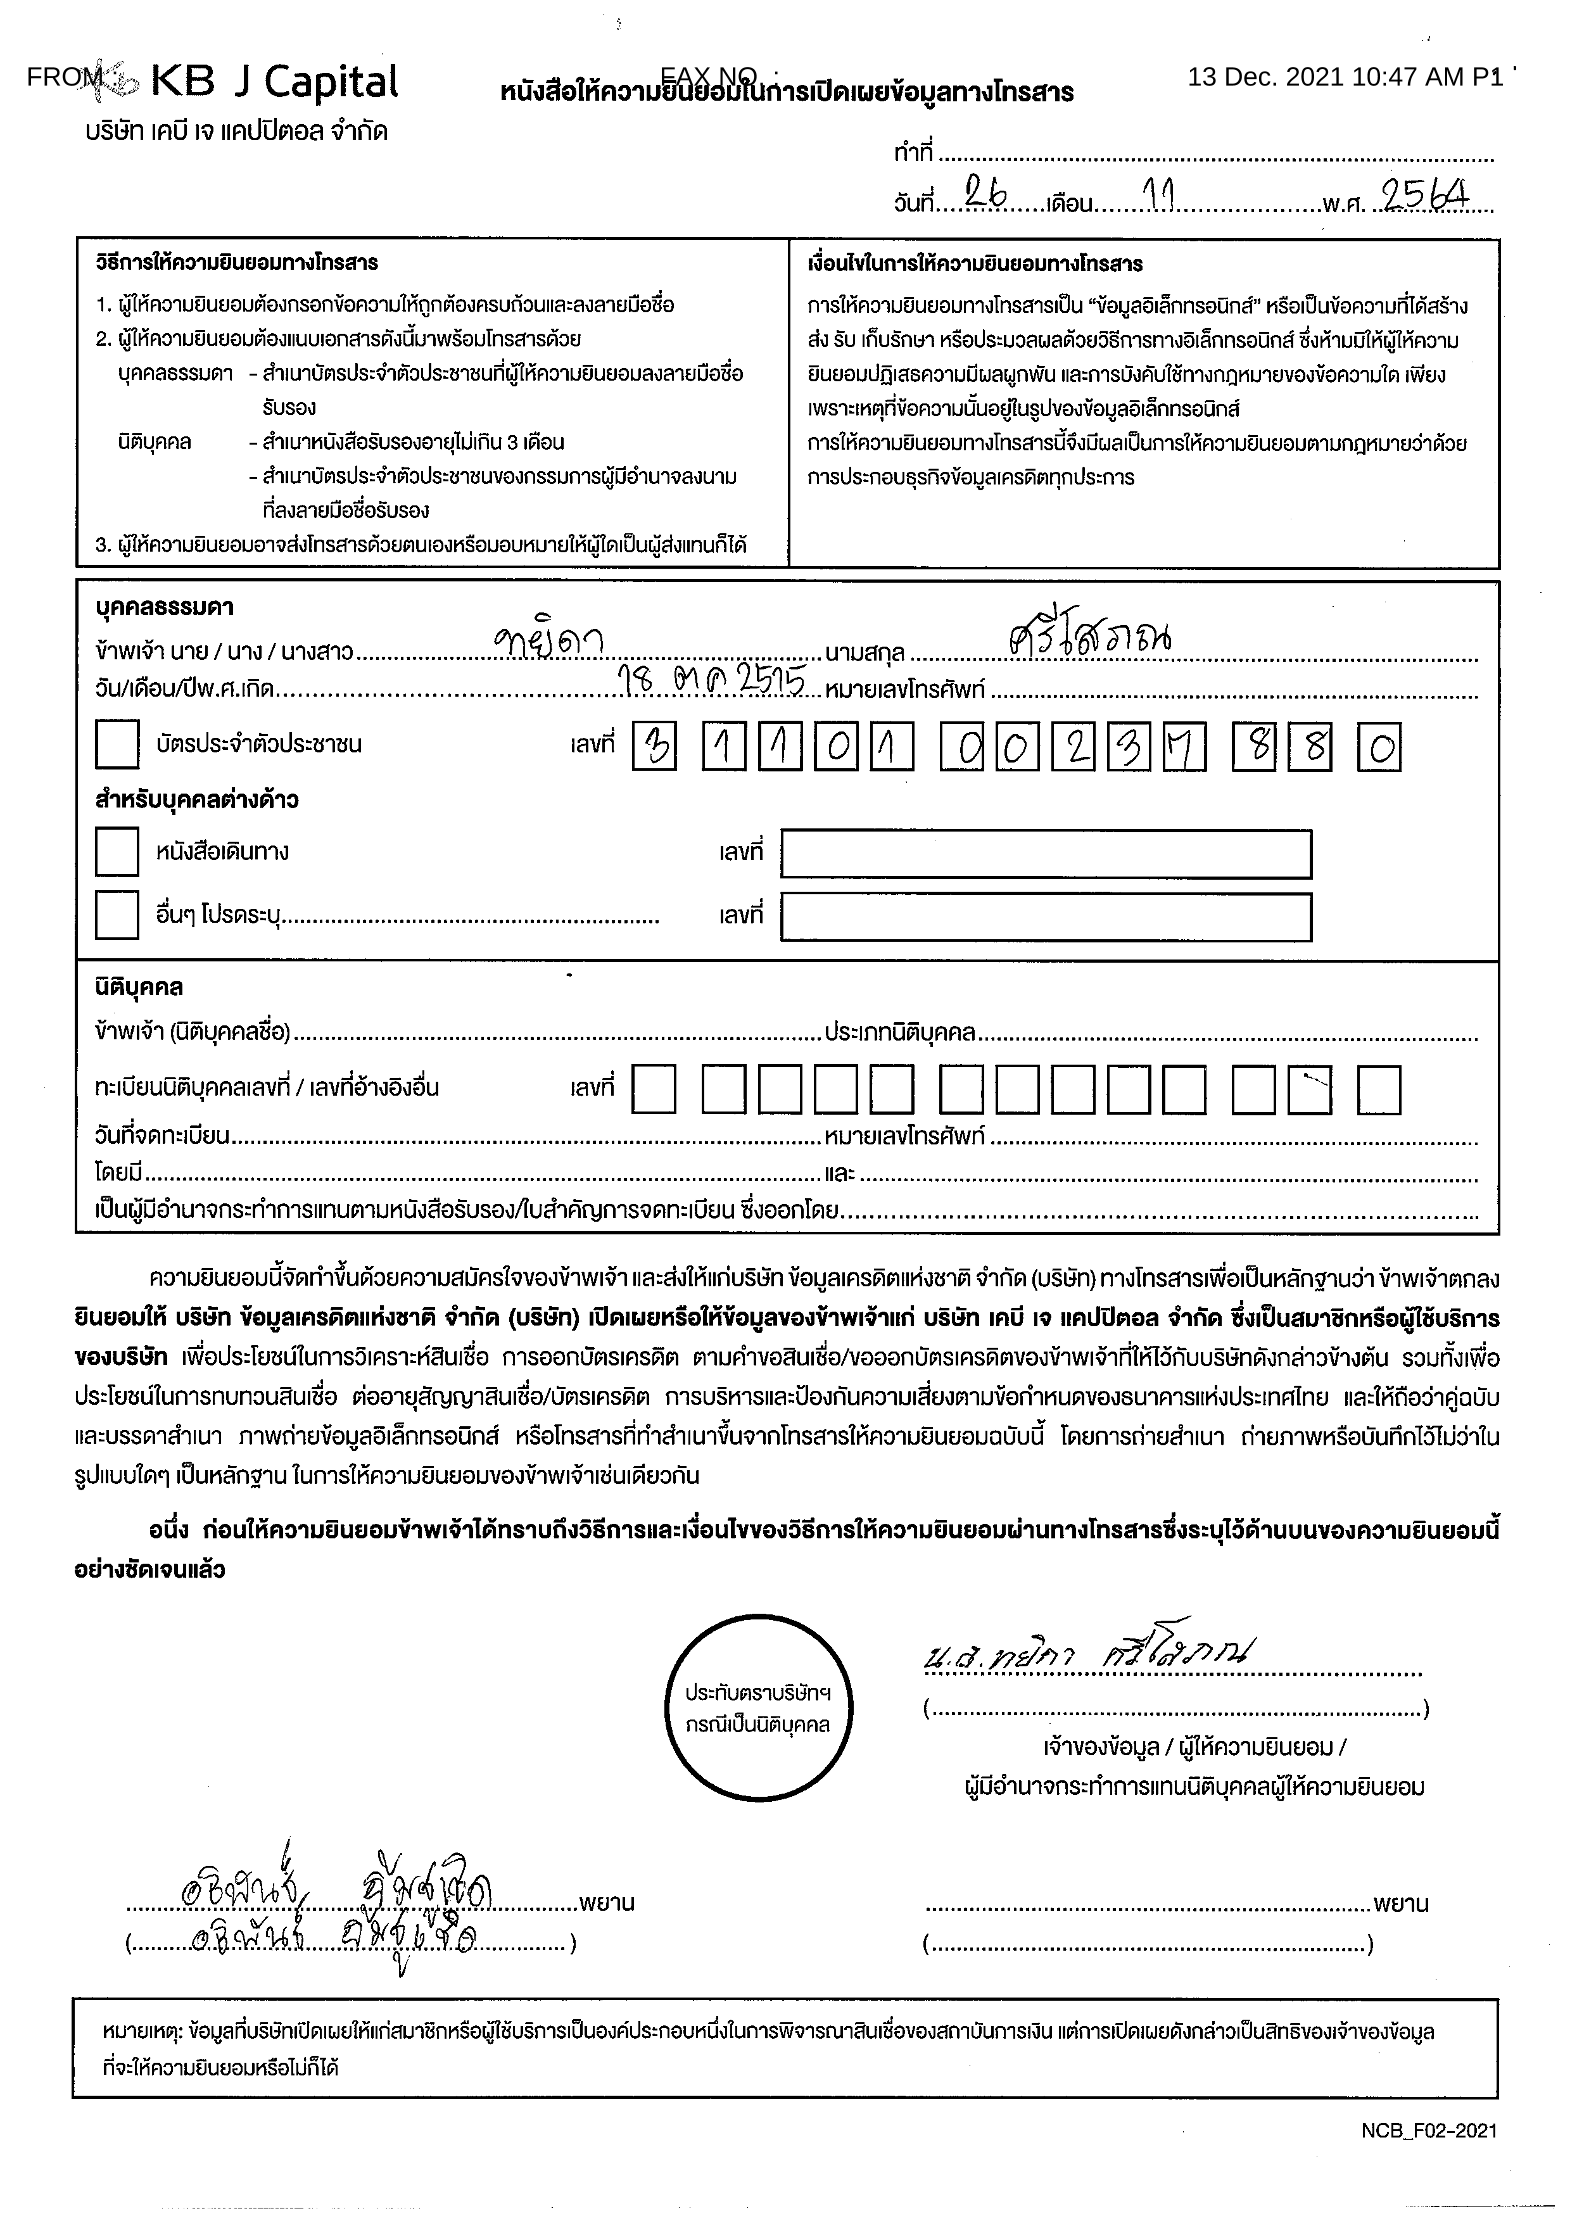 FROM : KB J Capital
FAX NO. :
13 Dec. 2021 10:47 AM P1
หนังสือให้ความยินยอมในการเปิดเผยข้อมูลทางโทรสาร
บริษัท เคบี เจ แคปปิตอล จำกัด
ทำที่
วันที่ 26 เดือน 11 พ.ศ. 2564
วิธีการให้ความยินยอมทางโทรสาร
1. ผู้ให้ความยินยอมต้องกรอกข้อความให้ถูกต้องครบถ้วนและลงลายมือชื่อ
2. ผู้ให้ความยินยอมต้องแนบเอกสารดังนี้มาพร้อมโทรสารด้วย
บุคคลธรรมดา - สำเนาบัตรประจำตัวประชาชนที่ผู้ให้ความยินยอมลงลายมือชื่อ
รับรอง
นิติบุคคล - สำเนาหนังสือรับรองอายุไม่เกิน 3 เดือน
- สำเนาบัตรประจำตัวประชาชนของกรรมการผู้มีอำนาจลงนาม
ที่ลงลายมือชื่อรับรอง
3. ผู้ให้ความยินยอมอาจส่งโทรสารด้วยตนเองหรือมอบหมายให้ผู้ใดเป็นผู้ส่งแทนก็ได้
เงื่อนไขในการให้ความยินยอมทางโทรสาร
การให้ความยินยอมทางโทรสารเป็น “ข้อมูลอิเล็กทรอนิกส์” หรือเป็นข้อความที่ได้สร้าง
ส่ง รับ เก็บรักษา หรือประมวลผลด้วยวิธีการทางอิเล็กทรอนิกส์ ซึ่งห้ามมิให้ผู้ให้ความ
ยินยอมปฏิเสธความมีผลผูกพัน และการบังคับใช้ทางกฎหมายของข้อความใด เพียง
เพราะเหตุที่ข้อความนั้นอยู่ในรูปของข้อมูลอิเล็กทรอนิกส์
การให้ความยินยอมทางโทรสารนี้จึงมีผลเป็นการให้ความยินยอมตามกฎหมายว่าด้วย
การประกอบธุรกิจข้อมูลเครดิตทุกประการ
บุคคลธรรมดา
ข้าพเจ้า นาย / นาง / นางสาว ทยิดา นามสกุล ศรีโสภณ
วัน/เดือน/ปีพ.ศ.เกิด 18 ตค 2515 หมายเลขโทรศัพท์
บัตรประจำตัวประชาชน เลขที่ 3 1101 00237 88 0
สำหรับบุคคลต่างด้าว
หนังสือเดินทาง เลขที่
อื่นๆ โปรดระบุ เลขที่
นิติบุคคล
ข้าพเจ้า (นิติบุคคลชื่อ) ประเภทนิติบุคคล
ทะเบียนนิติบุคคลเลขที่ / เลขที่อ้างอิงอื่น เลขที่
วันที่จดทะเบียน หมายเลขโทรศัพท์
โดยมี และ
เป็นผู้มีอำนาจกระทำการแทนตามหนังสือรับรอง/ใบสำคัญการจดทะเบียน ซึ่งออกโดย
ความยินยอมนี้จัดทำขึ้นด้วยความสมัครใจของข้าพเจ้า และส่งให้แก่บริษัท ข้อมูลเครดิตแห่งชาติ จำกัด (บริษัท) ทางโทรสารเพื่อเป็นหลักฐานว่า ข้าพเจ้าตกลง
ยินยอมให้ บริษัท ข้อมูลเครดิตแห่งชาติ จำกัด (บริษัท) เปิดเผยหรือให้ข้อมูลของข้าพเจ้าแก่ บริษัท เคบี เจ แคปปิตอล จำกัด ซึ่งเป็นสมาชิกหรือผู้ใช้บริการ
ของบริษัท เพื่อประโยชน์ในการวิเคราะห์สินเชื่อ การออกบัตรเครดิต ตามคำขอสินเชื่อ/ขอออกบัตรเครดิตของข้าพเจ้าที่ให้ไว้กับบริษัทดังกล่าวข้างต้น รวมทั้งเพื่อ
ประโยชน์ในการทบทวนสินเชื่อ ต่ออายุสัญญาสินเชื่อ/บัตรเครดิต การบริหารและป้องกันความเสี่ยงตามข้อกำหนดของธนาคารแห่งประเทศไทย และให้ถือว่าคู่ฉบับ
และบรรดาสำเนา ภาพถ่ายข้อมูลอิเล็กทรอนิกส์ หรือโทรสารที่ทำสำเนาขึ้นจากโทรสารให้ความยินยอมฉบับนี้ โดยการถ่ายสำเนา ถ่ายภาพหรือบันทึกไว้ไม่ว่าใน
รูปแบบใดๆ เป็นหลักฐาน ในการให้ความยินยอมของข้าพเจ้าเช่นเดียวกัน
อนึ่ง ก่อนให้ความยินยอมข้าพเจ้าได้ทราบถึงวิธีการและเงื่อนไขของวิธีการให้ความยินยอมผ่านทางโทรสารซึ่งระบุไว้ด้านบนของความยินยอมนี้
อย่างชัดเจนแล้ว
ประทับตราบริษัทฯ
กรณีเป็นนิติบุคคล
น.ส.ทยิดา ศรีโสภณ
( )
เจ้าของข้อมูล / ผู้ให้ความยินยอม /
ผู้มีอำนาจกระทำการแทนนิติบุคคลผู้ให้ความยินยอม
อธิพันธ์ พยาน
( อธิพันธ์ )
พยาน
( )
หมายเหตุ: ข้อมูลที่บริษัทเปิดเผยให้แก่สมาชิกหรือผู้ใช้บริการเป็นองค์ประกอบหนึ่งในการพิจารณาสินเชื่อของสถาบันการเงิน แต่การเปิดเผยดังกล่าวเป็นสิทธิของเจ้าของข้อมูล
ที่จะให้ความยินยอมหรือไม่ก็ได้
NCB_F02-2021